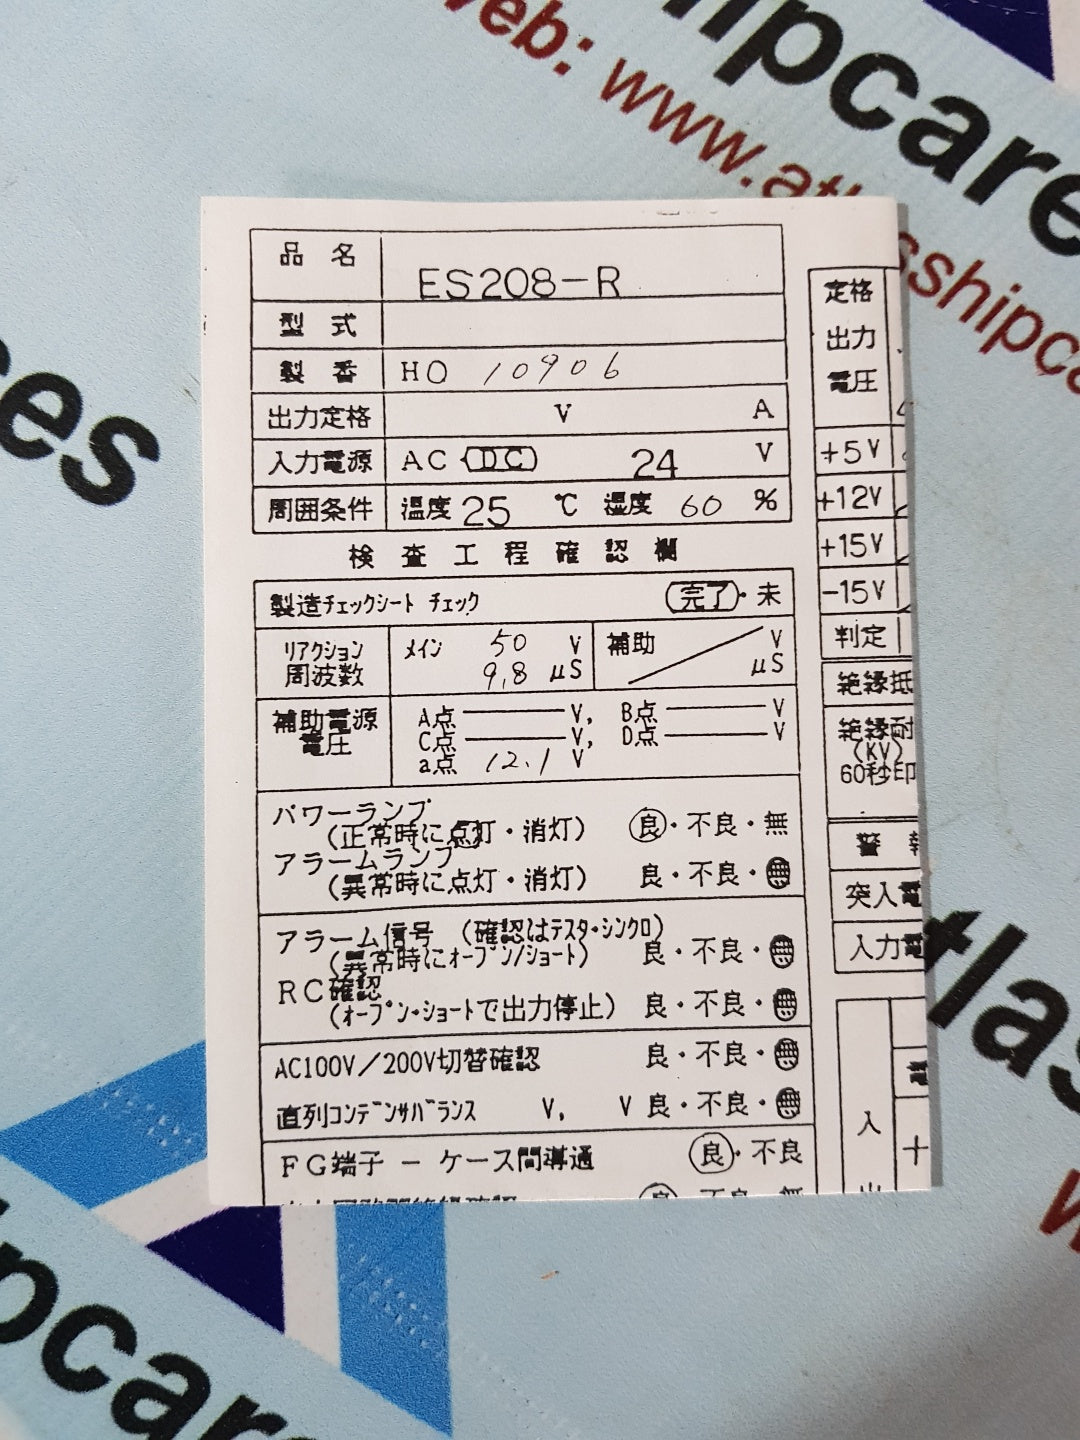 web: www.atl
hipcare
sshipca
ces
品名 ES208-R
型式
製番 HO 10906
出力定格 V A
入力電源 AC (DC) 24 V
周囲条件 温度 25 ℃ 湿度 60 %
検査工程確認欄
製造チェックシート チェック 完了・未
リアクション周波数 メイン 50 V 9.8 μS 補助 V μS
補助電源電圧 A点 V, B点 V
C点 V, D点 V
a点 12.1 V
パワーランプ
(正常時に点灯・消灯) 良・不良・無
アラームランプ
(異常時に点灯・消灯) 良・不良・無
アラーム信号 (確認はテスタ・シンクロ)
(異常時にオープン/ショート) 良・不良・無
RC確認
(オープン・ショートで出力停止) 良・不良・無
AC100V/200V切替確認 良・不良・無
直列コンデンサバランス V, V 良・不良・無
FG端子 - ケース間導通 良・不良
定格
出力
電圧
+5V
+12V
+15V
-15V
判定
絶縁抵
絶縁耐
(KV)
60秒印
警報
突入電
入力電
入
+
tlas
pcar
w